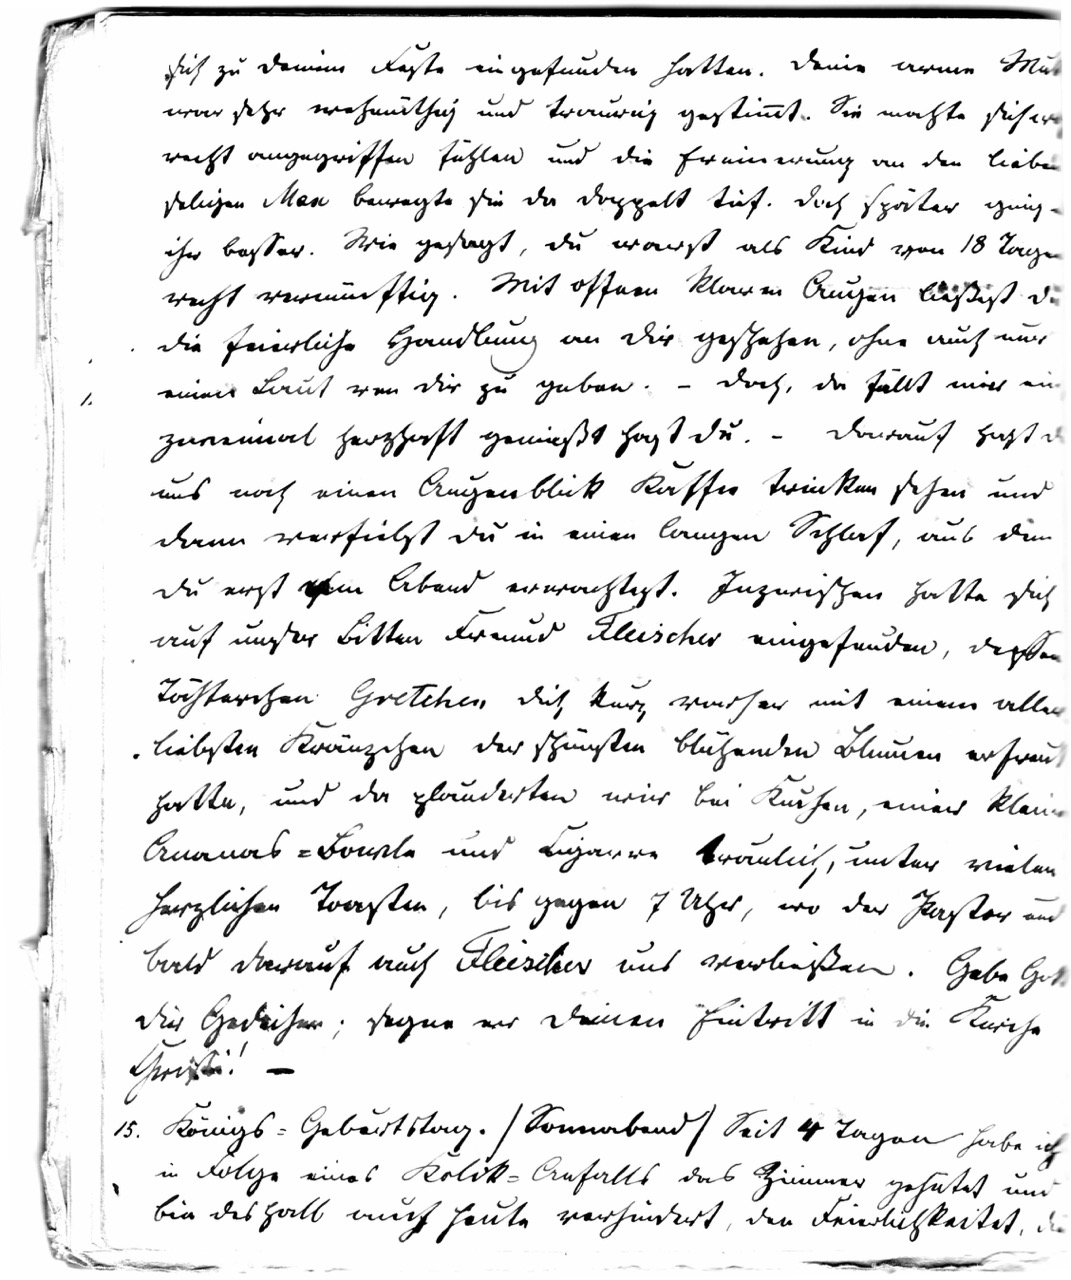 sich zu deinem Feste eingefunden hatten. Deine arme
war sehr wehmüthig und traurig gestimmt. Sie mochte sich
recht angegriffen fühlen und die Erinnerung an den lieben
seligen Max bewegte sie da doppelt tief. Doch später ging
ihr besser. Wie gesagt, du warst als Kind von 18 Tagen
recht vernünftig. Mit offnen klaren Augen ließest
die feierliche Handlung an dir geschehen, ohne auch nur
einen Laut von dir zu geben. – Doch, da fällt mir ein
zweimal herzhaft geniest hast du. – Darauf hast
uns noch einen Augenblick Kaffee trinken sehen und
dann verfielst du in einen langen Schlaf, aus dem
du erst am Abend erwachtest. Inzwischen hatte sich
auf unser Bitten Freund Fleischer eingefunden, dessen
Töchterchen Gretchen dich kurz vorher mit einem aller
liebsten Kränzchen der schönsten blühenden Blumen erfreut
hatte, und da plauderten wir bei Kuchen, einer kleinen
Ananas=Bowle und Cigarre traulich, unter vielen
herzlichen Toasten, bis gegen 7 Uhr, wo der Pastor und
bald darauf auch Fleischer uns verließen. Gebe Gott
dir Gedeihen; segne er deinen Eintritt in die Kirche
Christi! –
15. Königs=Geburtstag. /Sonnabend/ Seit 4 Tagen habe ich
in Folge eines Kolik=Anfalls das Zimmer gehütet und
bin deshalb auch heute verhindert, den Feierlichkeiten,